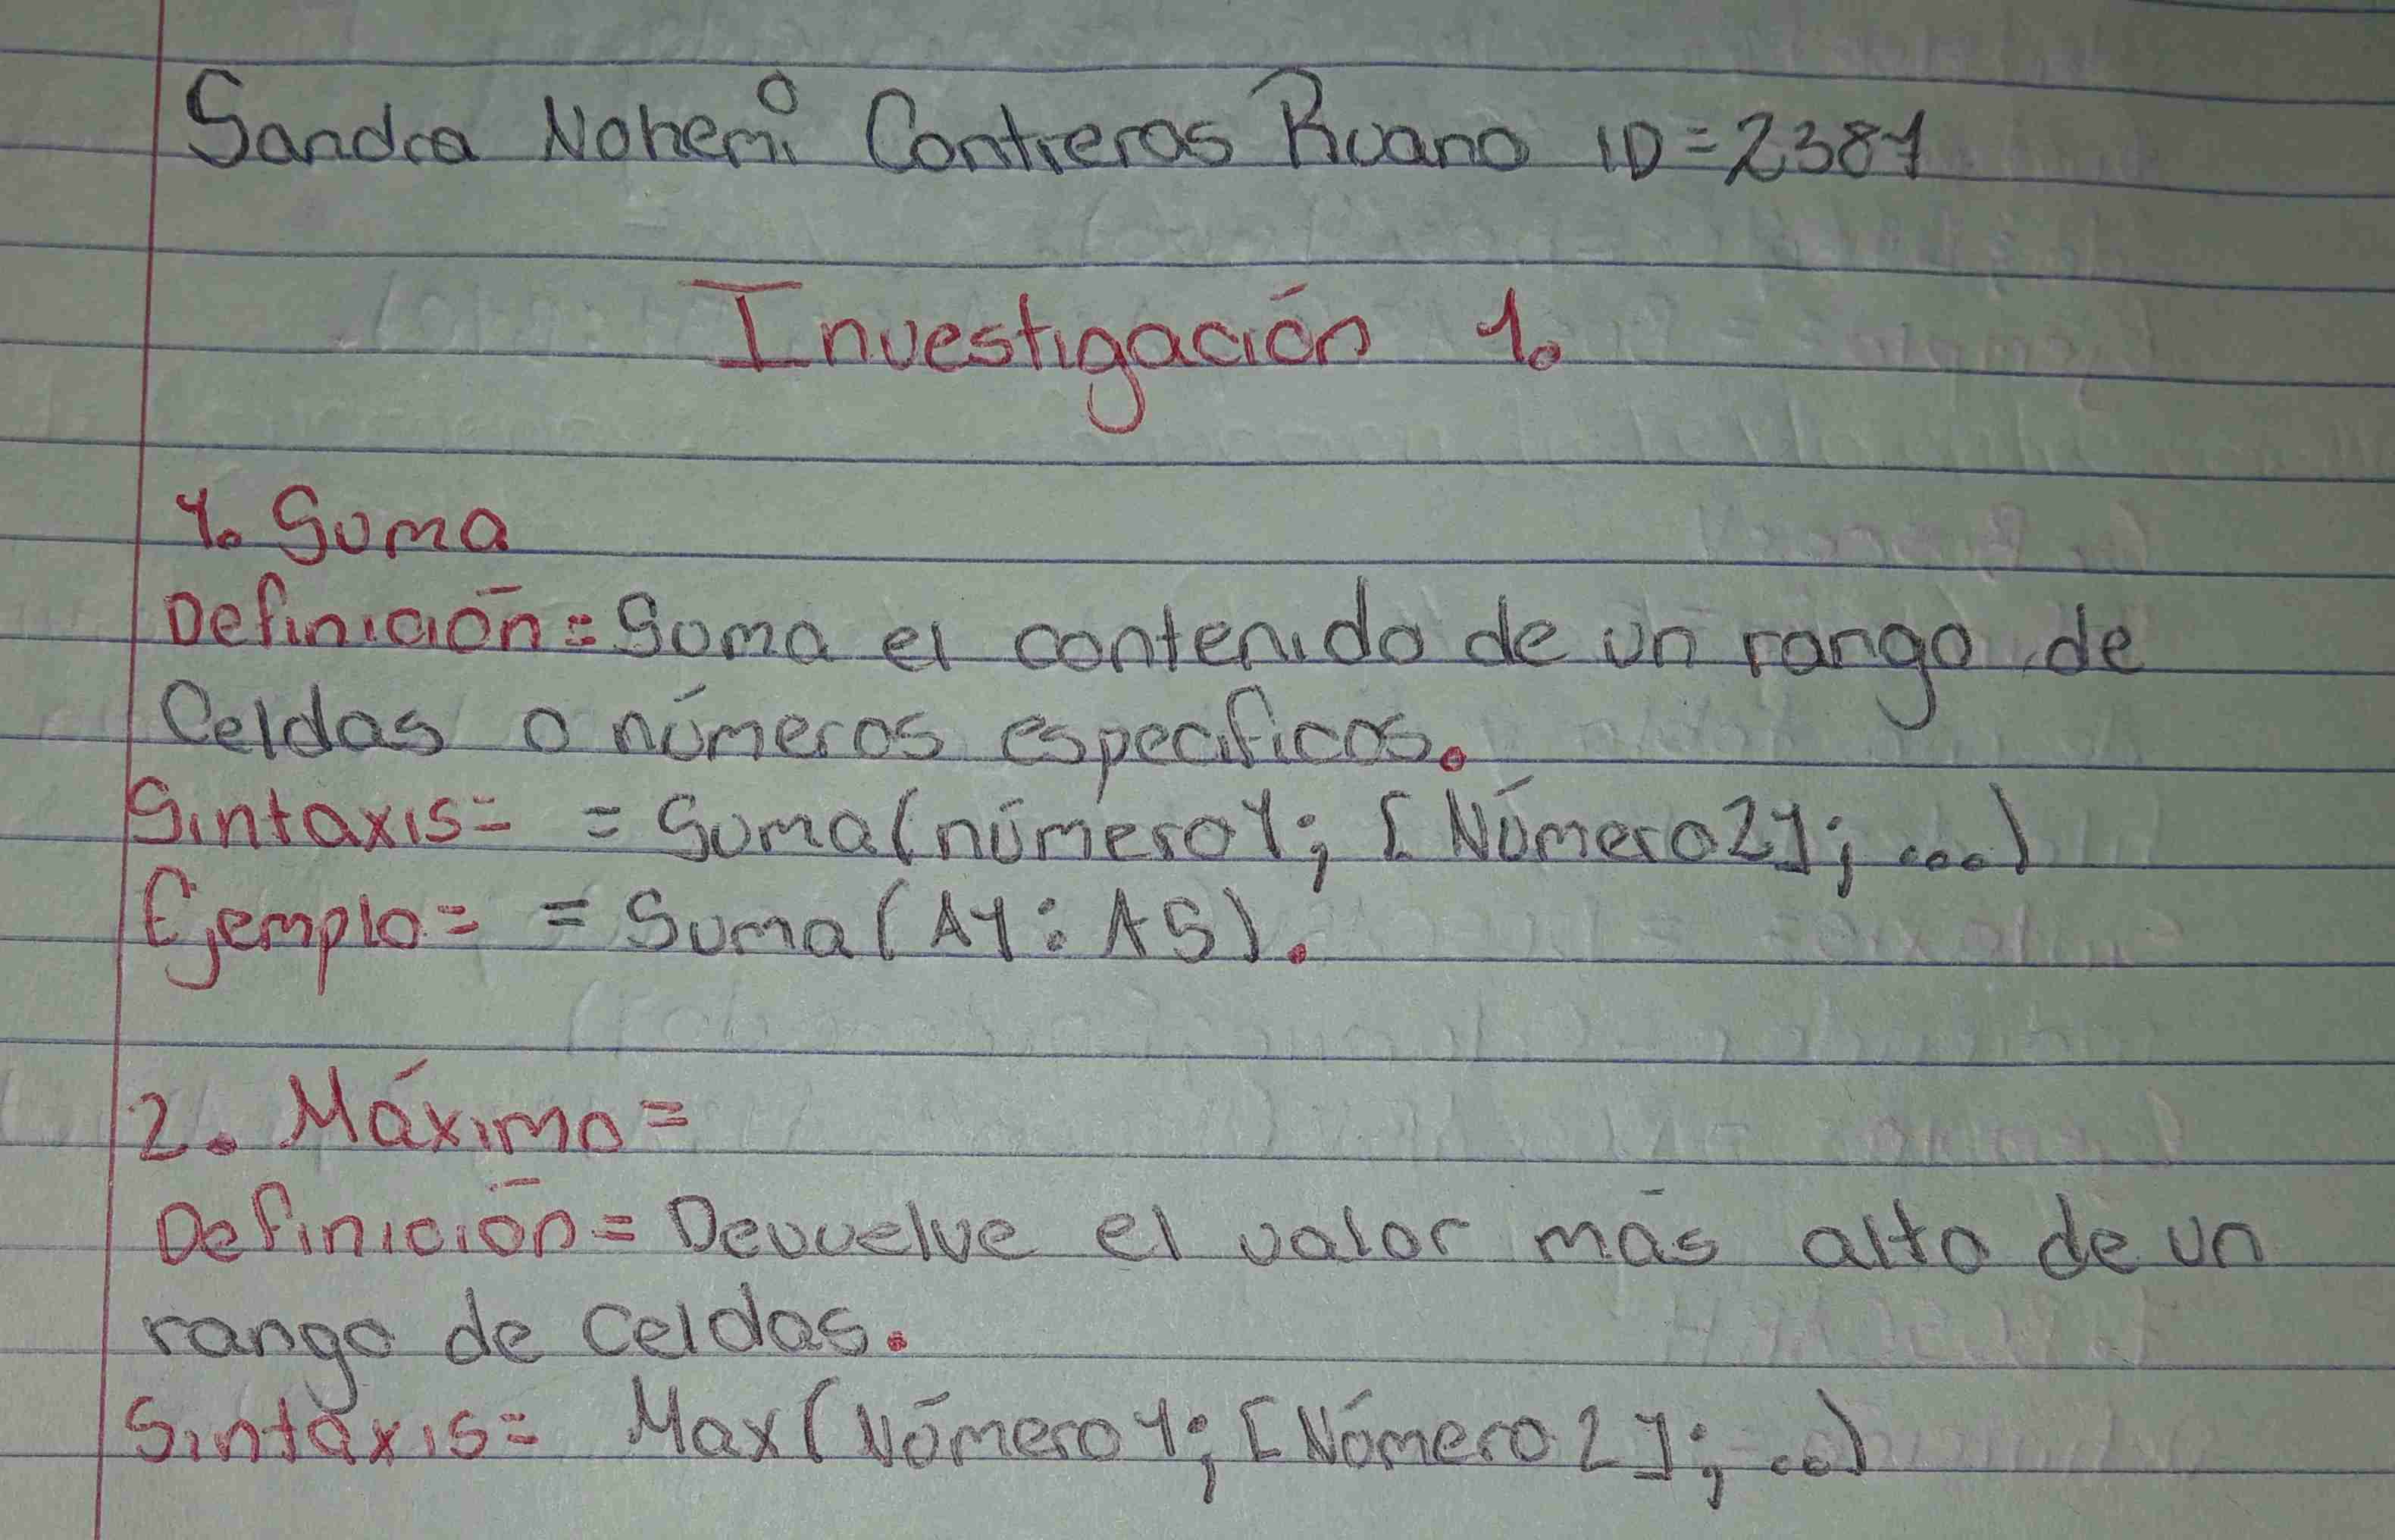 Sandra Nohemí Contreras Ruano ID=2381
Investigación 1.
1. Suma
Definición= Suma el contenido de un rango de
Celdas o números especificos.
Sintaxis= =Suma(número1; [Número2]; ...)
Ejemplo= =Suma(A1:A5).
2. Máximo=
Definición= Devuelve el valor más alto de un
rango de celdas.
Sintaxis= Max(Número1; [Número2]; ...)